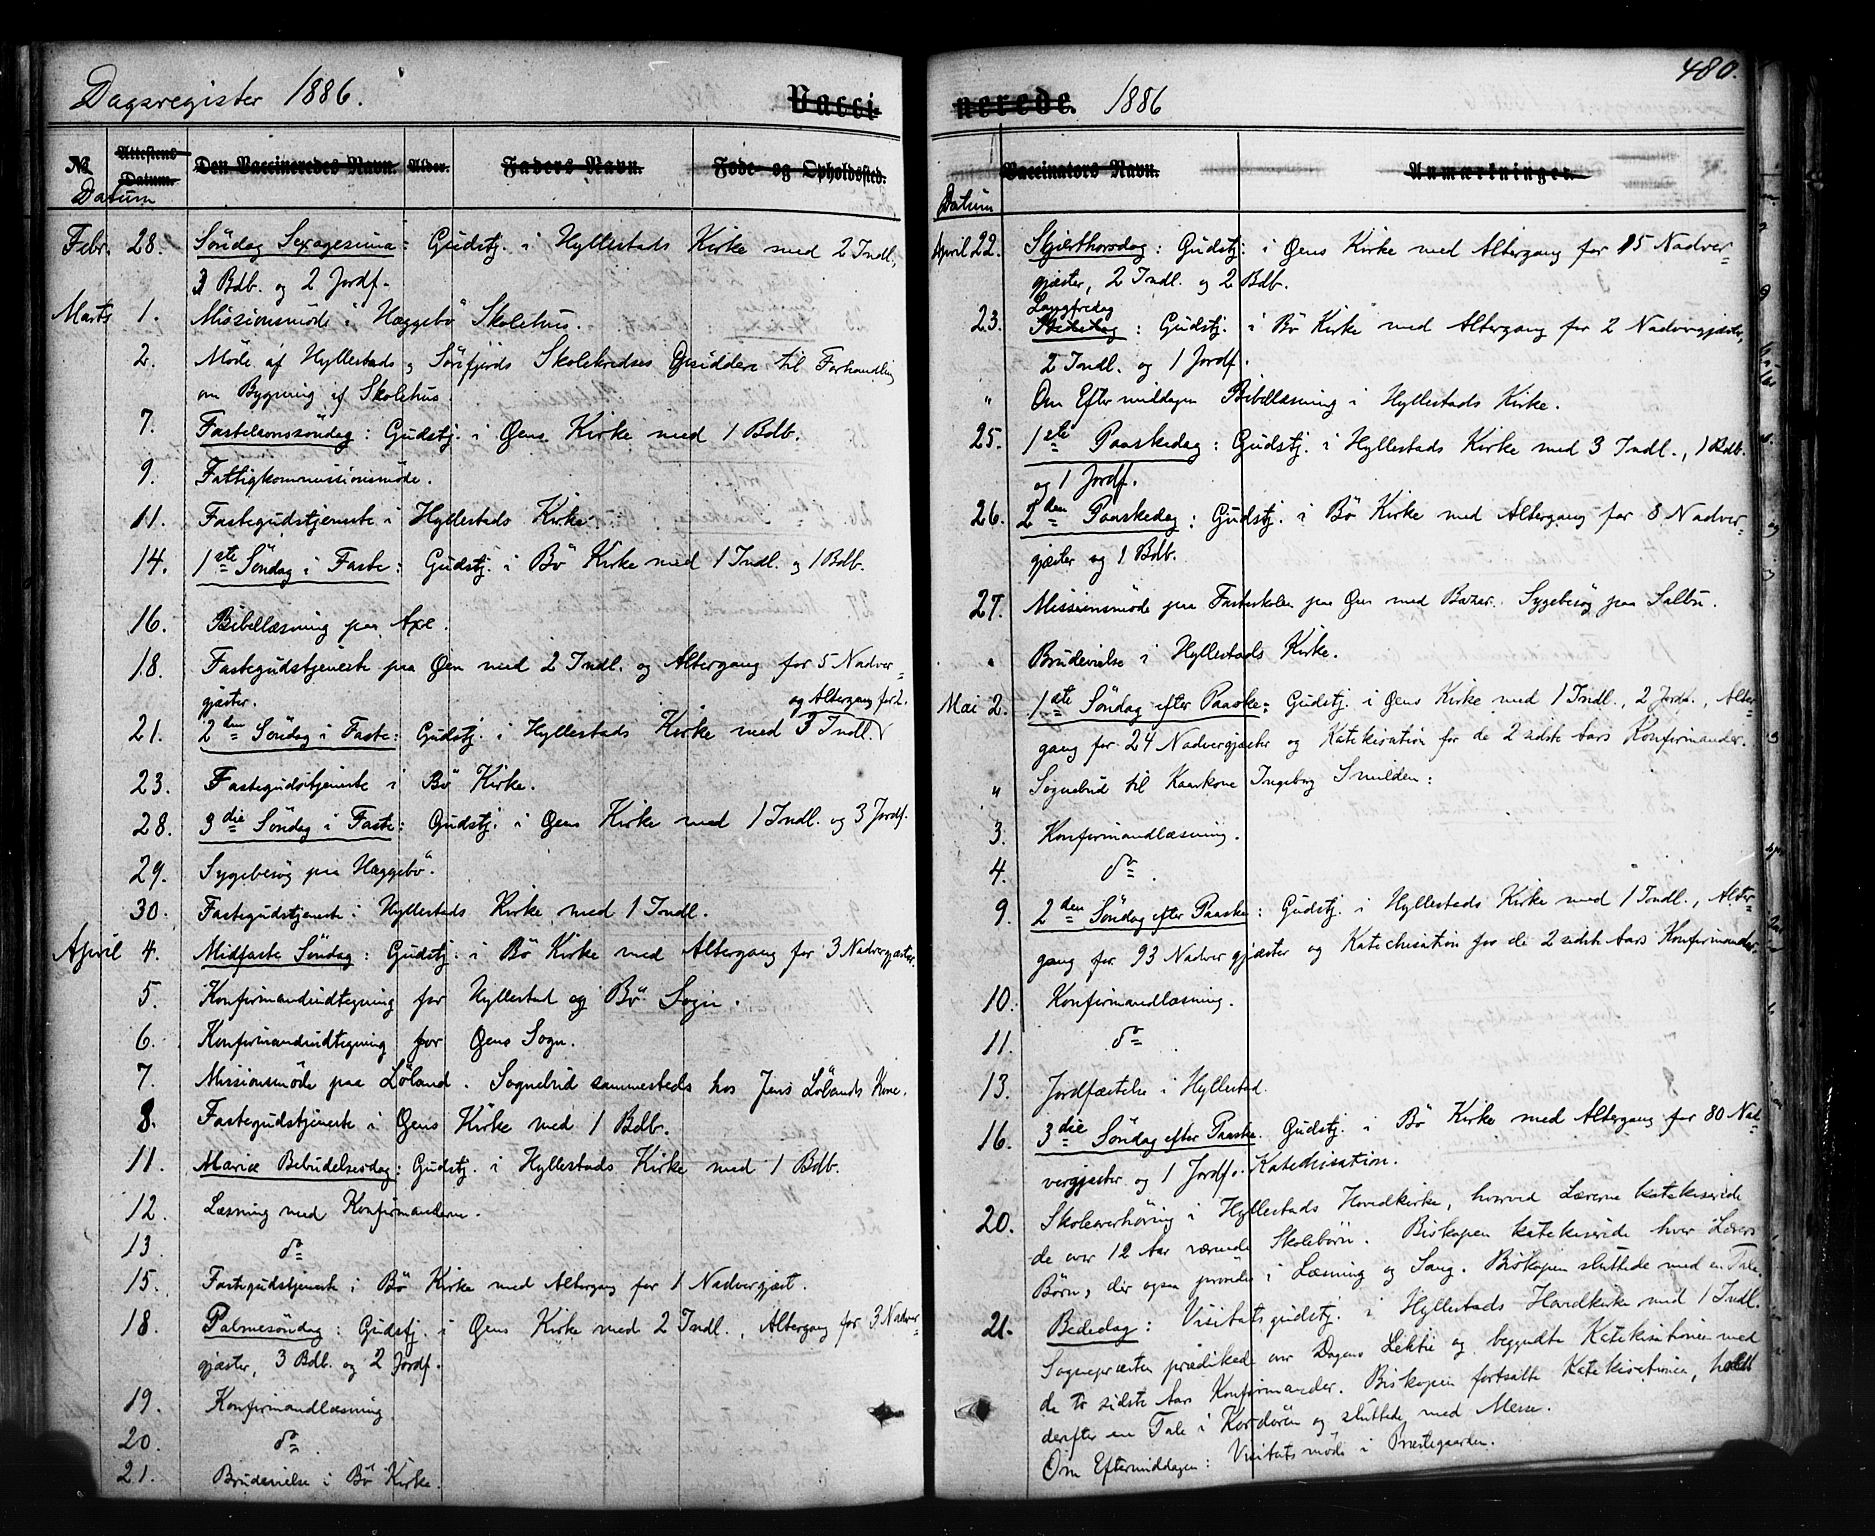 Dagsregister 1886.
Vacci
No
Attestens Datum.
Den Vaccineredes Navn.
Alder.
Faders Navn.
Føde- og Opholdssted.
Datum
Febr. 28. Søndag Sexagesima: Gudstj. i Hyllestads Kirke med 2 Indl.,
3 Bdb. og 2 Jordf.
Marts 1. Missionsmöde i Hæggebö Skolehus.
2. Möde af Hyllestads og Sörefjords Skolekredses Opsiddere til Forhandling
om Bygning af Skolehus.
7. Fastelavnssöndag: Gudstj. i Öens Kirke med 1 Bdb.
9. Fattigkommissionsmöde.
11. Fastegudstjeneste i Hyllestads Kirke.
14. 1ste Söndag i Faste: Gudstj. i Bö Kirke med 1 Indl. og 1 Bdb.
16. Bibellæsning paa Axe.
18. Fastegudstjeneste paa Øen med 2 Indl. og Altergang for 5 Nadver-
gjæster.
og Altergang for 2.
21. 2den Söndag i Faste: Gudstj. i Hyllestads Kirke med 3 Indl.
23. Fastegudstjeneste i Bö Kirke.
28. 3die Söndag i Faste: Gudstj. i Øens Kirke med 1 Indl. og 3 Jordf.
29. Sygebesög paa Hæggebö.
30. Fastegudstjeneste i Hyllestads Kirke med 1 Indl.
April 4. Midfaste Söndag: Gudstj. i Bö Kirke med Altergang for 3 Nadvergjæster.
5. Konfirmandudtegning for Hyllestad og Bö Sogn.
6. Konfirmandudtegning for Øens Sogn.
7. Missionsmöde paa Löland. Sognebud sammesteds hos Jens Lölands Kone.
8. Fastegudstjeneste i Øens Kirke med 1 Bdb.
11. Mariæ Bebudelsesdag: Gudstj. i Hyllestads Kirke med 1 Bdb.
12. Læsning med Konfirmanderne.
13. do
15. Fastegudstjeneste i Bö Kirke med Altergang for 1 Nadvergjæst.
18. Palmesöndag: Gudstj. i Øens Kirke med 2 Indl., Altergang for 3 Nadver-
gjæster, 3 Bdb. og 2 Jordf.
19. Konfirmandlæsning.
20. do.
21. Brudevielse i Bö Kirke.
480.
nerede. 1886
Vaccinators Navn.
Anmærkninger.
Datum
April 22. Skjærthorsdag: Gudstj. i Øens Kirke med Altergang for 15 Nadver-
gjæster, 2 Indl. og 2 Bdb.
Langfredag
23. Bededag: Gudstj. i Bö Kirke med Altergang for 2 Nadvergjæster,
2 Indl. og 1 Jordf.
" Om Eftermiddagen Bibellæsning i Hyllestads Kirke.
25. 1ste Paaskedag: Gudstj. i Hyllestads Kirke med 3 Indl., 1 Bdb.
og 1 Jordf.
26. 2den Paaskedag: Gudstj. i Bö Kirke med Altergang for 8 Nadver-
gjæster og 1 Bdb.
27. Missionsmöde paa Fasteskolen paa Øen med Bazar. Sygebesög paa Salbu.
" Brudevielse i Hyllestads Kirke.
Mai 2. 1ste Söndag efter Paaske: Gudstj. i Øens Kirke med 1 Indl., 2 Jordf., Alter-
gang for 24 Nadvergjæster og Katekisation for de 2 sidste Aars Konfirmander.
" Sognebud til Kaarkone Ingeborg Smilden:
3. Konfirmandlæsning.
4. do.
9. 2den Söndag efter Paaske: Gudstj. i Hyllestads Kirke med 1 Indl., Alter-
gang for 93 Nadvergjæster og Katechisation for de 2 sidste Aars Konfirmander.
10. Konfirmandlæsning.
11. do
13. Jordfæstelse i Hyllestad.
16. 3die Söndag efter Paaske. Gudstj. i Bö Kirke med Altergang for 80 Nad-
vergjæster og 1 Jordf. Katechisation.
20. Skoleoverhöring i Hyllestads Hovedkirke, hvorved Lærerne katekiserede
de over 12 Aar værende Skolebörn. Biskopen katekiserede hver Lærers
Börn, der ogsaa prövedes i Læsning og Sang. Biskopen sluttede med en Tale.
21. Bededag: Visitatsgudstj. i Hyllestads Hovedkirke med 1 Indl.
Sognepræsten prædikede over Dagens Lektie og begyndte Katekisationen med
de to sidste Aars Konfirmander. Biskopen fortsatte Katekisationen, holdt
derefter en Tale i Kordören og sluttede med Messe.
Om Eftermiddagen: Visitatsmöde i Præstegaarden.